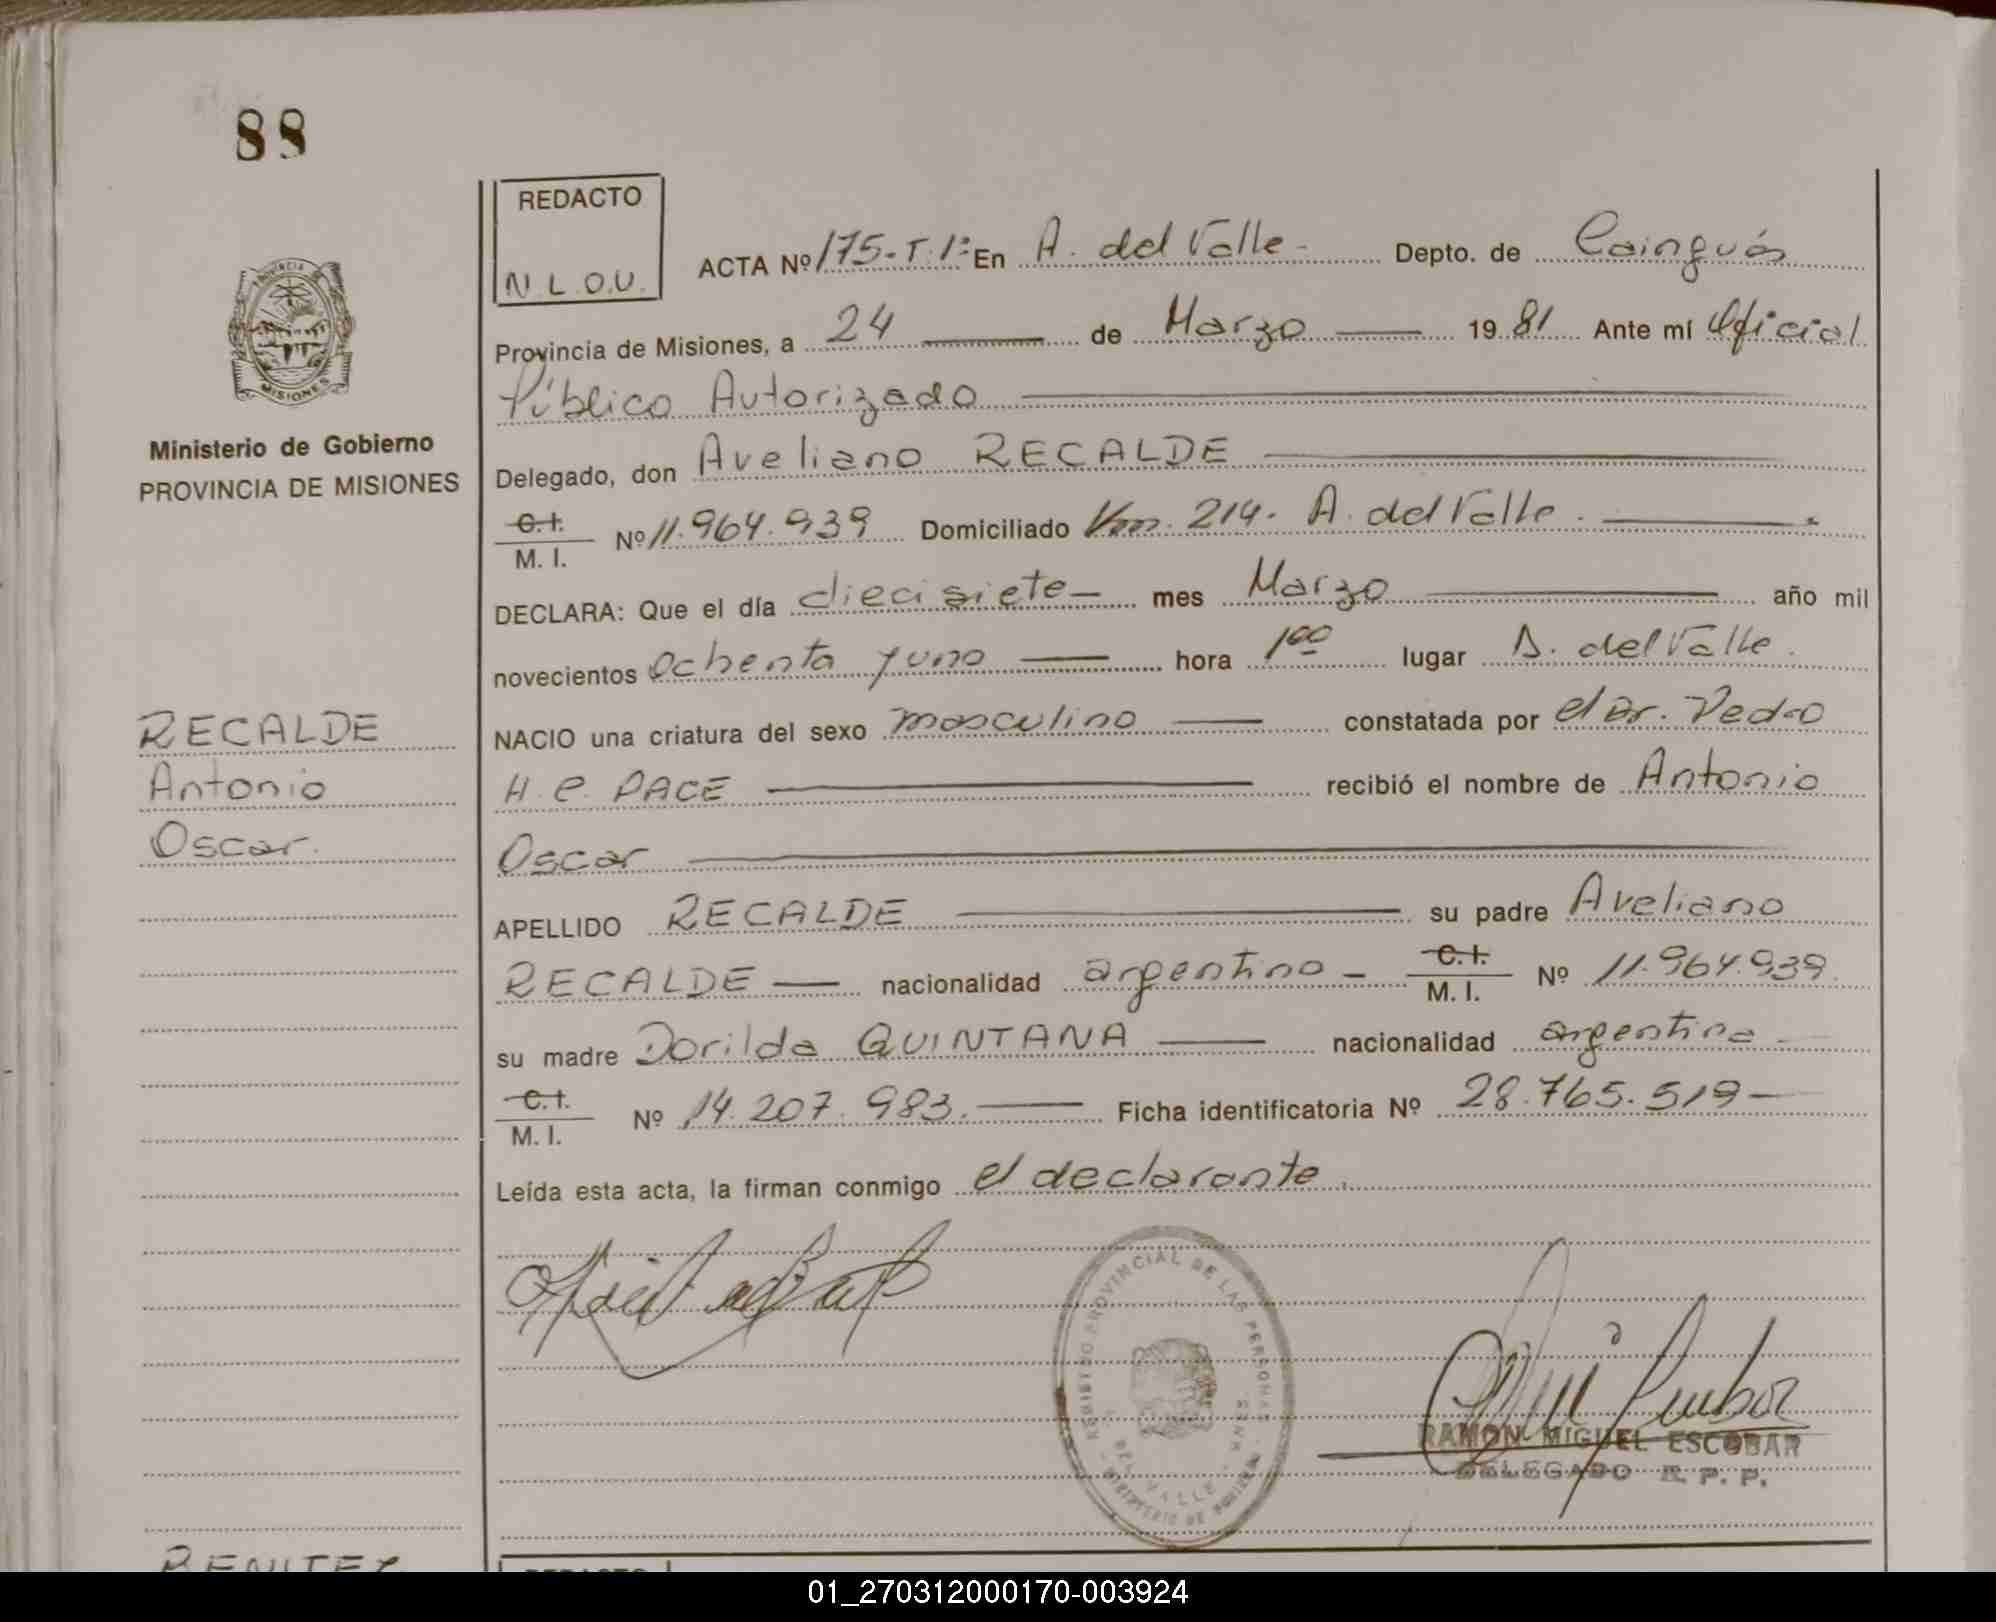 88
REDACTO
N.L.O.U.
ACTA Nº 175-T.1º En A. del Valle - Depto. de Cainguás
Provincia de Misiones, a 24 de Marzo 19 81 Ante mí Oficial
Público Autorizado
Delegado, don Aveliano RECALDE
C.I. M.I. Nº 11.964.939 Domiciliado Km. 214. A. del Valle.
DECLARA: Que el día diecisiete - mes Marzo año mil
novecientos Ochenta y uno hora 1,00 lugar A. del Valle.
NACIO una criatura del sexo masculino constatada por el Dr. Pedro
H. C. PACE recibió el nombre de Antonio
Oscar
APELLIDO RECALDE su padre Aveliano
RECALDE nacionalidad argentino - C.I. M.I. Nº 11.964.939.
su madre Dorilda QUINTANA nacionalidad argentina
C.I. M.I. Nº 14.207.983. Ficha identificatoria Nº 28.765.519 -
Leída esta acta, la firman conmigo el declarante.
PROVINCIA DE
MISIONES
Ministerio de Gobierno
PROVINCIA DE MISIONES
RECALDE
Antonio
Oscar.
REGISTRO PROVINCIAL DE LAS PERSONAS
DEL VALLE
MINISTERIO DE GOBIERNO
RAMON MIGUEL ESCOBAR
DELEGADO R. P. P.
BENITEZ
REDACTO
01_270312000170-003924